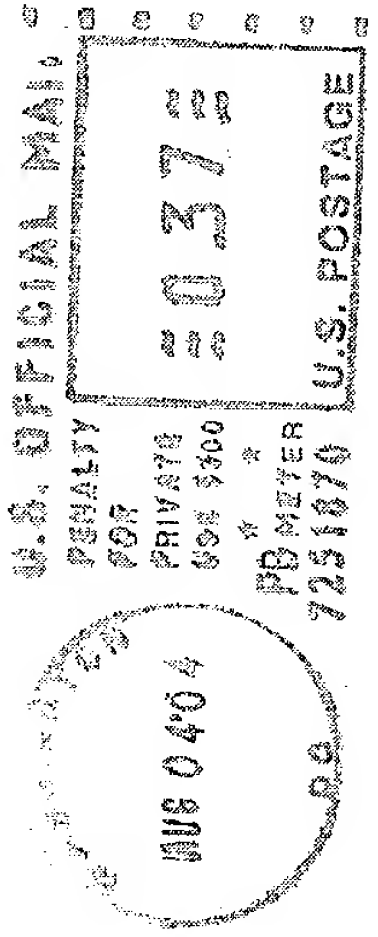 U.S. OFFICIAL MAIL
PENALTY
FOR
PRIVATE
USE $300
* *
PB METER
7251070
=037=
U.S. POSTAGE
AUG 04 04